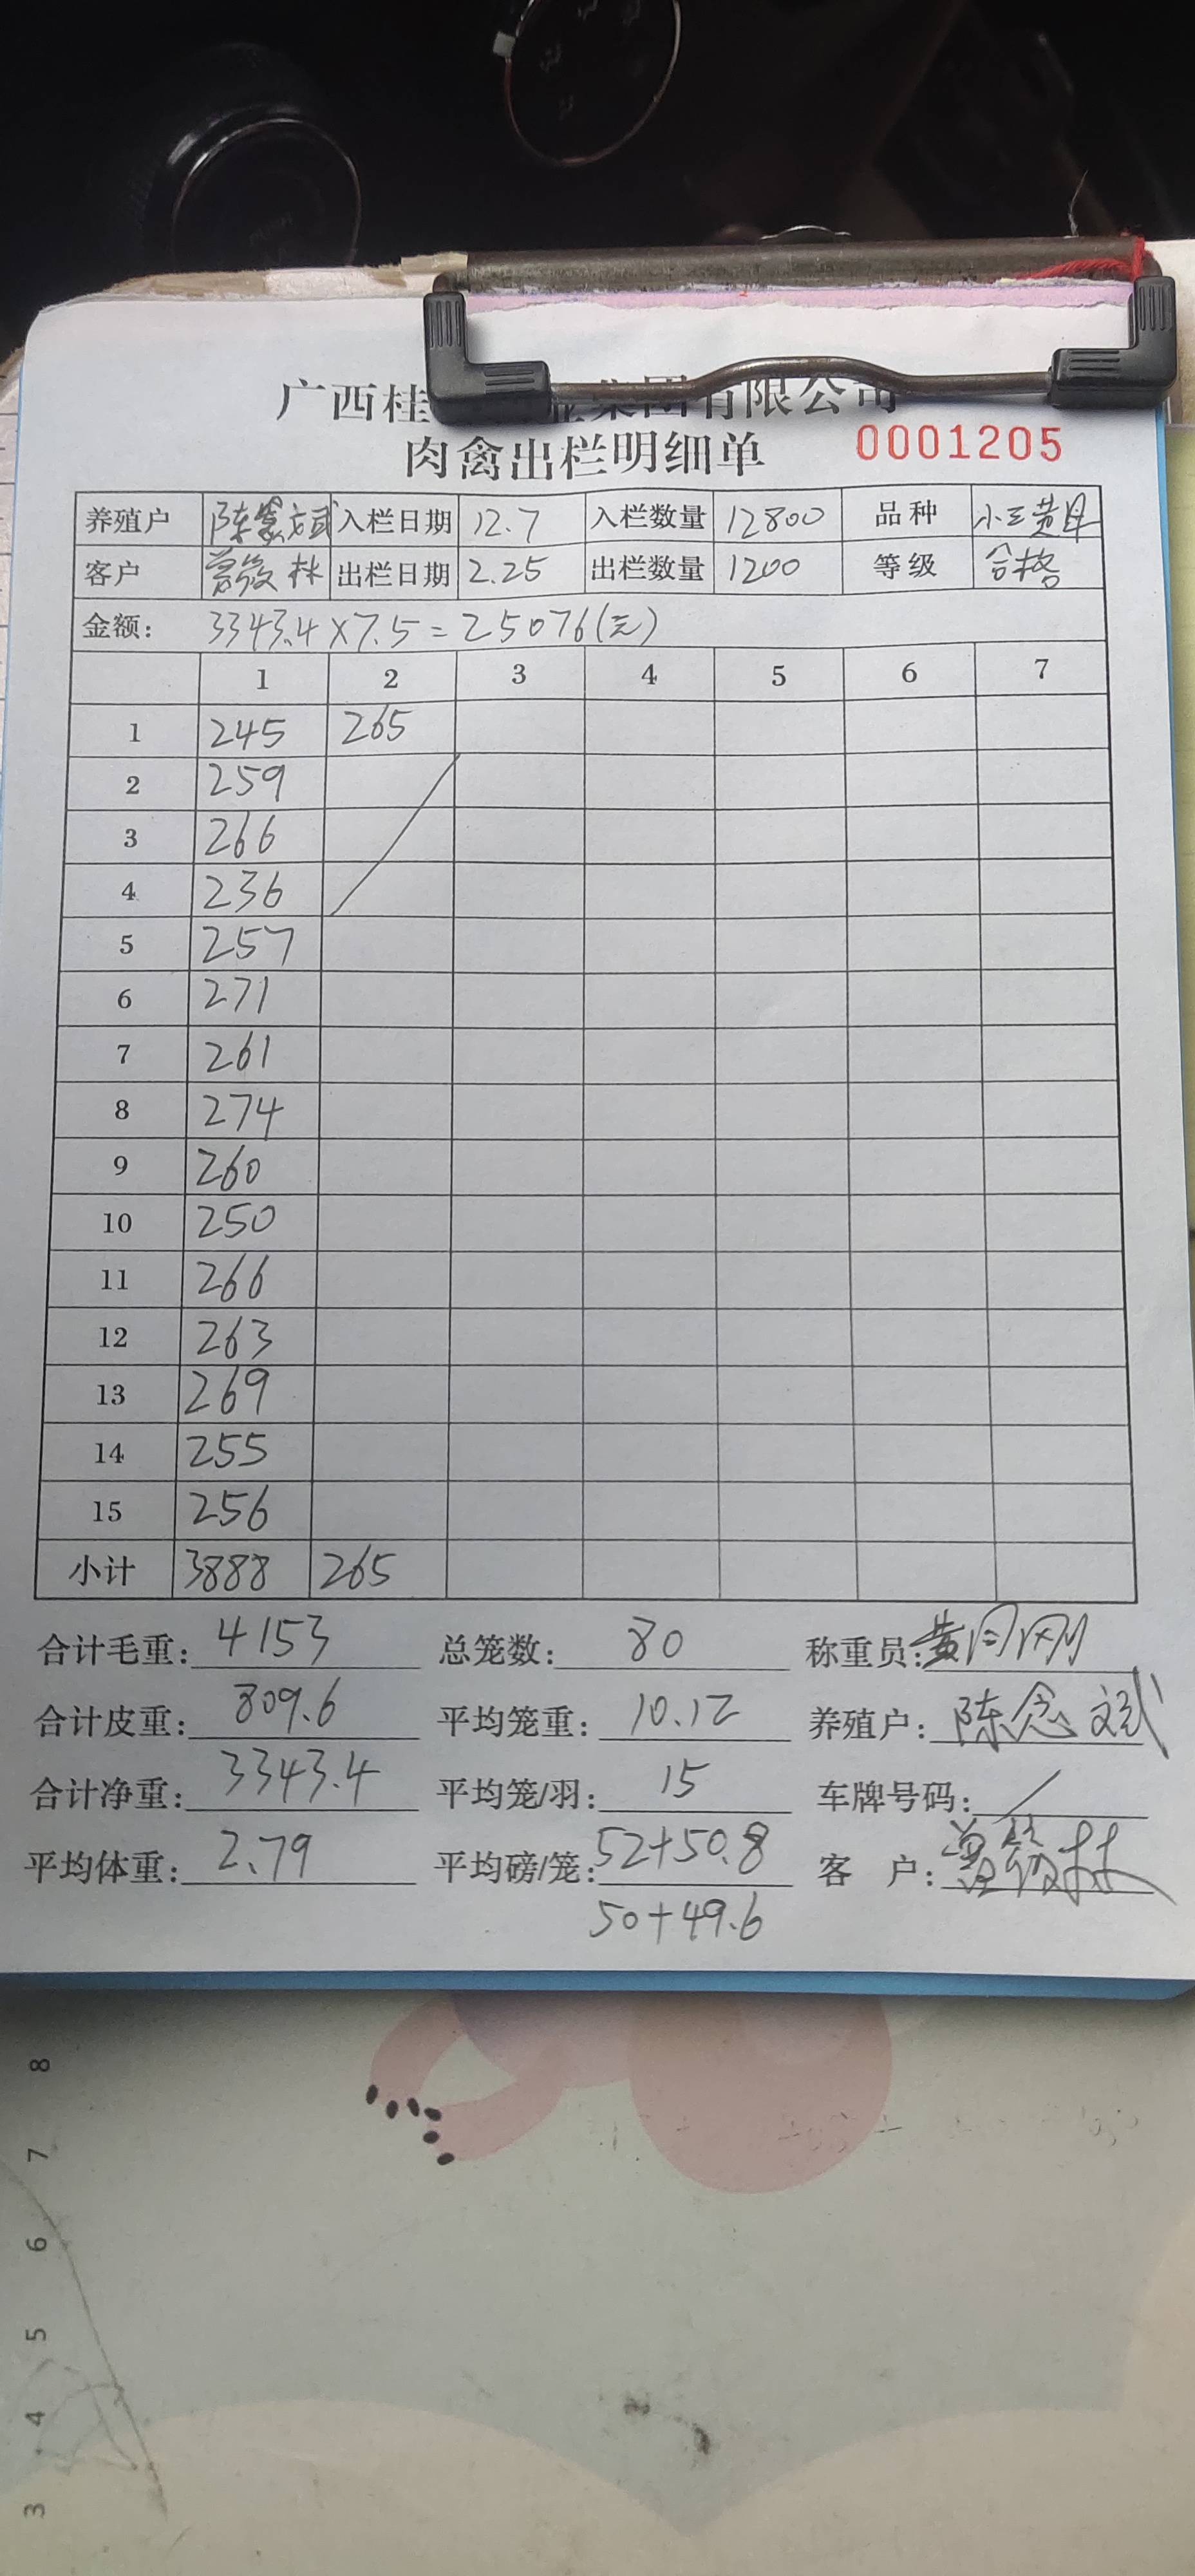 广西桂 集团有限公司
肉禽出栏明细单 0001205
养殖户 陈念斌 入栏日期 12.7 入栏数量 12800 品种 小三黄母
客户 曾 林 出栏日期 2.25 出栏数量 1200 等级 合格
金额： 3343.4×7.5=25076(元)
1 2 3 4 5 6 7
1 245 265
2 259
3 266
4 236
5 257
6 271
7 261
8 274
9 260
10 250
11 266
12 263
13 269
14 255
15 256
小计 3888 265
合计毛重： 4153 总笼数： 80 称重员： 黄 刚
合计皮重： 809.6 平均笼重： 10.12 养殖户： 陈念斌
合计净重： 3343.4 平均笼/羽： 15 车牌号码： /
平均体重： 2.79 平均磅/笼： 52+50.8 客 户： 曾 林
50+49.6
8
7
6
5
4
3